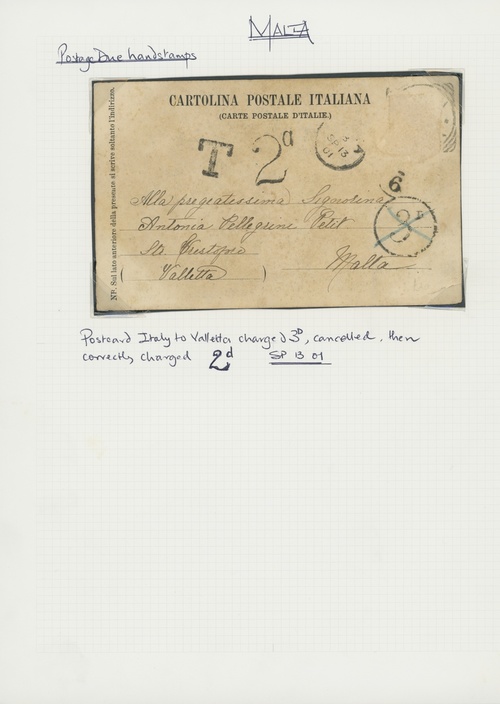 MALTA
Postage Due handstamps
CARTOLINA POSTALE ITALIANA
(CARTE POSTALE D'ITALIE.)
NB. Sul lato anteriore della presente si scrive soltanto l'indirizzo.
T 2d
SP 13
01
6
3D
Alla pregiatissima Signorina
Antonia Pellegrini Petit
Str.
(Valletta) Malta
Postcard Italy to Valletta charged 3D, cancelled, then
correctly charged 2d SP 13 01